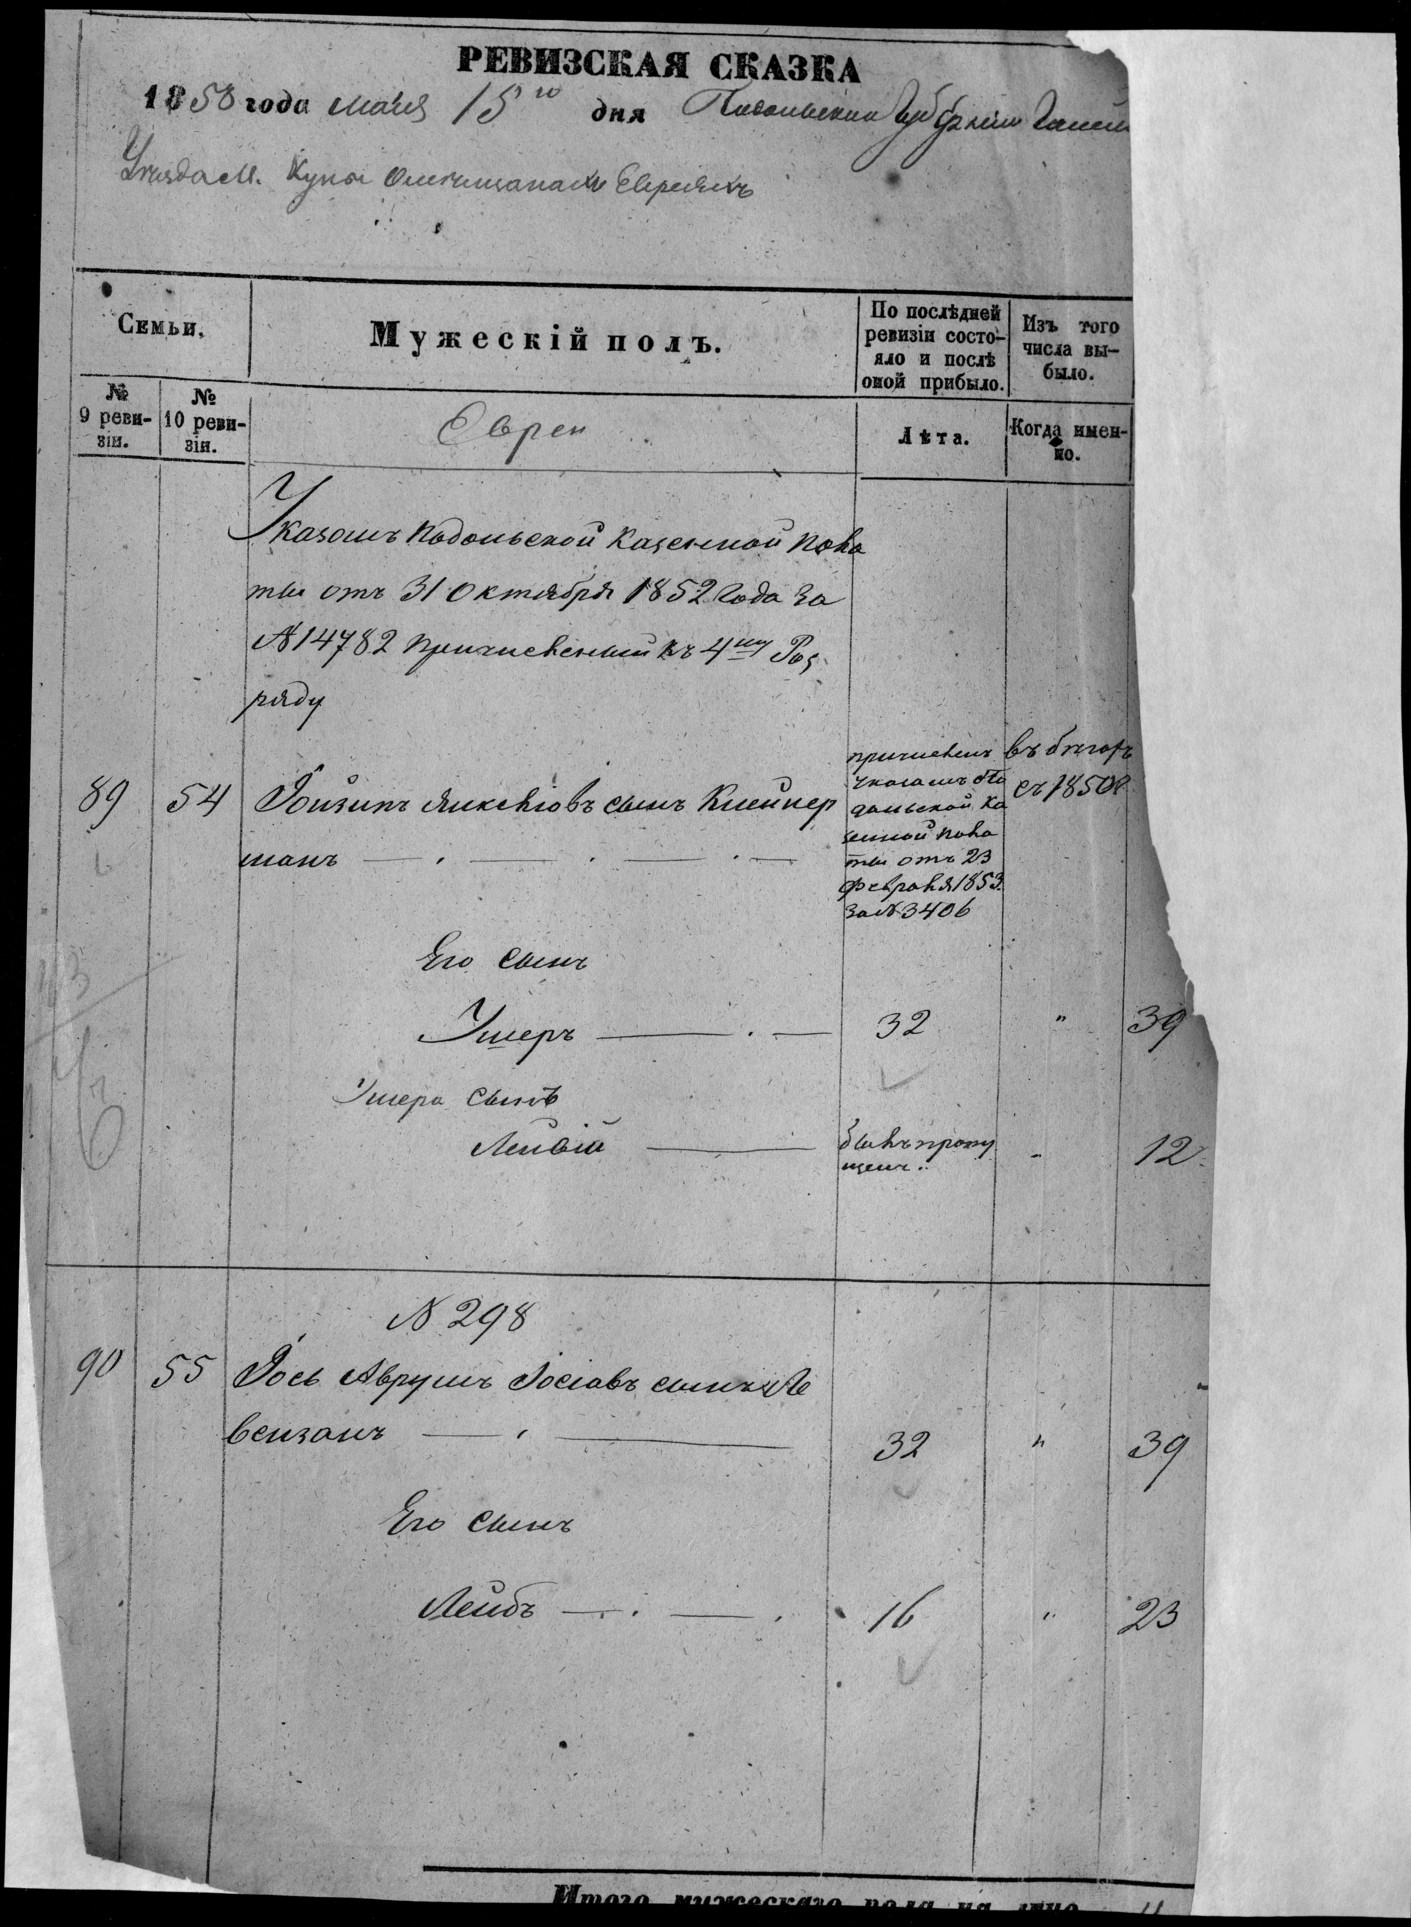 РЕВИЗСКАЯ СКАЗКА
1858 года маія 15го дня Подольской Губерніи Гайси
Уѣзда М. Куны о мещанахъ Евреяхъ
Семьи.
Мужескій полъ.
По послѣдней ревизіи состо-яло и послѣ оной прибыло.
Изъ того числа вы-было.
№ 9 реви-зіи.
№ 10 реви-зіи.
Евреи
Лѣта.
Когда имен-но.
Указомъ Подольской Казенной Пала
ты отъ 31 Октября 1852 Года За
№ 14782 Причисленный къ 4му Раз
ряду
89 54 сынъ Клейнер
манъ
причисленъ
Указомъ По
дольской Ка
зенной Пала
ты отъ 23
Февраля 1853.
За № 3406
въ бѣгахъ
съ 1850г
Его сынъ
Ушеръ 32 " 39
Ушера сынъ
Лейвій
былъ пропу
щенъ
12
N 298
90 55 Іось Аврумъ Іосіовъ сынъ Ле
вензонъ 32 " 39
Его сынъ
Лейбъ 16 " 23
Итого мужескаго пола на лицо